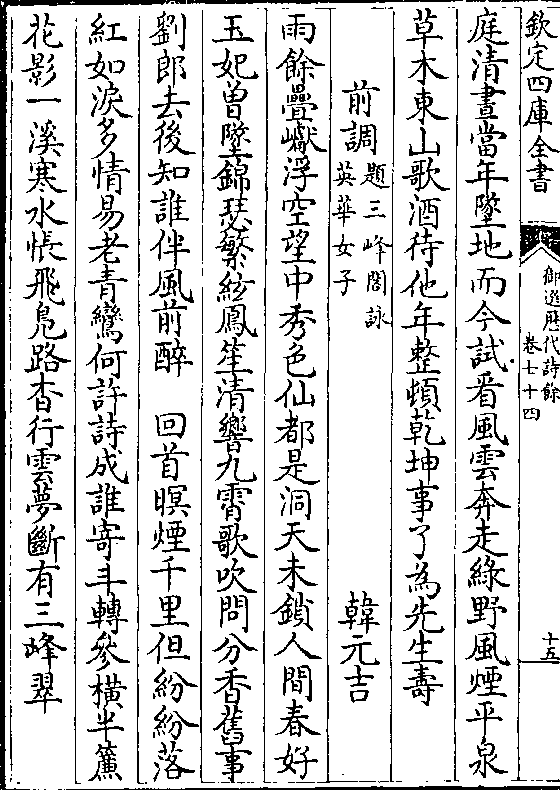 欽定四庫全書
御選歷代詩餘
卷七十四
十五
庭清晝當年墮地而今試看風雲奔走綠野風煙平泉
草木東山歌酒待他年整頓乾坤事了為先生壽
前調 題三峰閣詠
英華女子 韓元吉
雨餘疊巘浮空望中秀色仙都是洞天未鎖人間春好
玉妃曽墜錦瑟繁絃鳳笙清響九霄歌吹問分香舊事
劉郎去後知誰伴風前醉 回首暝煙千里但紛紛落
紅如淚多情易老青鸞何許詩成誰寄斗轉參橫半簾
花影一溪寒水悵飛鳧路杳行雲夢斷有三峰翠